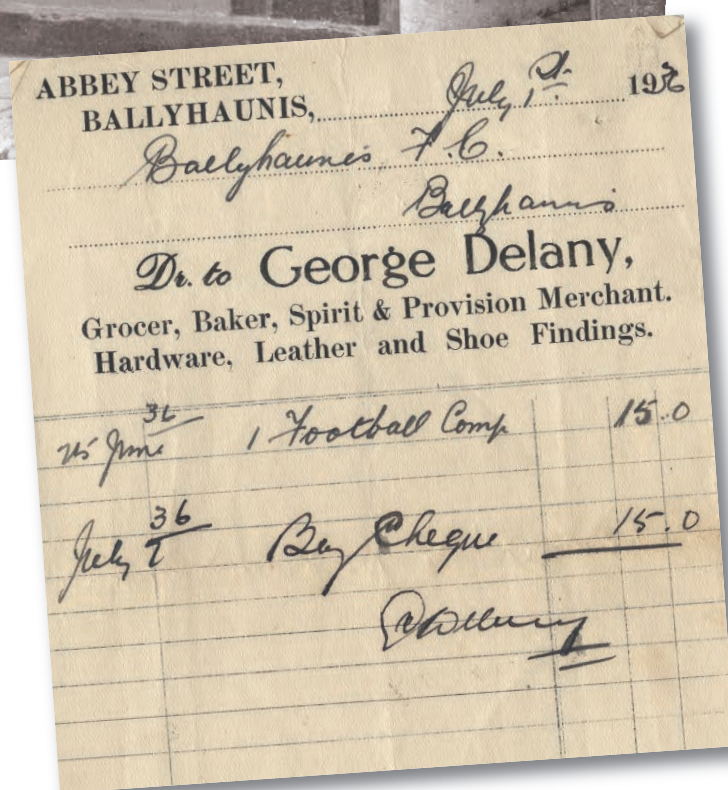 ABBEY STREET,
BALLYHAUNIS, July 1st. 1936
Ballyhaunis F.C.
Ballyhaunis
Dr. to George Delany,
Grocer, Baker, Spirit & Provision Merchant.
Hardware, Leather and Shoe Findings.
36
25 June 1 Football Comp 15.0
36
July 7 By Cheque 15.0